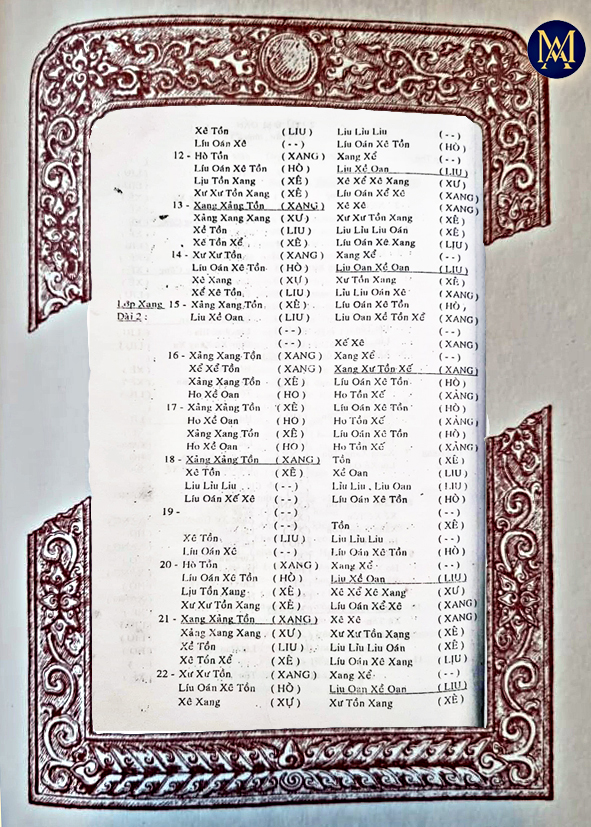 Xê Tồn (LIU) Liu Liu Liu (--)
Líu Oán Xê (--) Líu Oán Xê Tồn (HÒ)
12 - Hò Tồn (XANG) Xang Xể (--)
Líu Oán Xê Tồn (HÒ) Liu Xề Oan (LIU)
Lịu Tồn Xang (XÊ) Xê Xể Xê Xang (XƯ)
Xư Xư Tồn Xang (XÊ) Líu Oán Xể Xê (XANG)
13 - Xang Xảng Tồn (XANG) Xê Xê (XANG)
Xảng Xang Xang (XƯ) Xư Xư Tồn Xang (XÊ)
Xề Tồn (LIU) Liu Lỉu Liu Oán (XÊ)
Xê Tồn Xể (XÊ) Líu Oán Xê Xang (LỊU)
14 - Xư Xư Tồn (XANG) Xang Xể (--)
Líu Oán Xê Tồn (HÒ) Liu Oan Xề Oan (LIU)
Xê Xang (XỰ) Xư Tồn Xang (XÊ)
Xể Xê Tồn (LIU) Liu Líu Oán Xê (XANG)
Lớp Xang 15 - Xảng Xang Tồn (XÊ) Líu Oán Xê Tồn (HÒ)
Dài 2 : Liu Xề Oan (LIU) Liu Oan Xề Tồn Xể (XANG)
(--) (--)
(--) Xế Xê (XANG)
16 - Xảng Xang Tồn (XANG) Xang Xể (--)
Xể Xể Tồn (XANG) Xang Xư Tồn Xế (XANG)
Xảng Xang Tồn (XÊ) Líu Oán Xê Tồn (HÒ)
Ho Xề Oan (HO) Ho Tồn Xế (XẢNG)
17 - Xảng Xảng Tồn (XÊ) Líu Oán Xê Tồn (HÒ)
Ho Xề Oan (HO) Ho Tồn Xế (XẢNG)
Xảng Xang Tồn (XÊ) Líu Oán Xê Tồn (HÒ)
Ho Xề Oan (HO) Ho Tồn Xế (XẢNG)
18 - Xảng Xảng Tồn (XANG) Tồn (XÊ)
Xê Tồn (XÊ) Xề Oan (LIU)
Liu Lỉu Liu (--) Liu Liu , Liu Oan (LIU)
Líu Oán Xế Xê (--) Líu Oán Xê Tồn (HÒ)
19 - (--) (--)
(--) Tồn (XÊ)
Xê Tồn (LIU) Liu Lỉu Liu (--)
Líu Oán Xê (--) Líu Oán Xê Tồn (HÒ)
20 - Hò Tồn (XANG) Xang Xể (--)
Líu Oán Xê Tồn (HÒ) Liu Xề Oan (LIU)
Lịu Tồn Xang (XÊ) Xê Xể Xê Xang (XƯ)
Xư Xư Tồn Xang (XÊ) Líu Oán Xể Xê (XANG)
21 - Xang Xảng Tồn (XANG) Xê Xê (XANG)
Xảng Xang Xang (XƯ) Xư Xư Tồn Xang (XÊ)
Xề Tồn (LIU) Liu Lỉu Liu Oán (XÊ)
Xê Tồn Xể (XÊ) Líu Oán Xê Xang (LỊU)
22 - Xư Xư Tồn (XANG) Xang Xể (--)
Líu Oán Xê Tồn (HÒ) Liu Oan Xề Oan (LIU)
Xê Xang (XỰ) Xư Tồn Xang (XÊ)